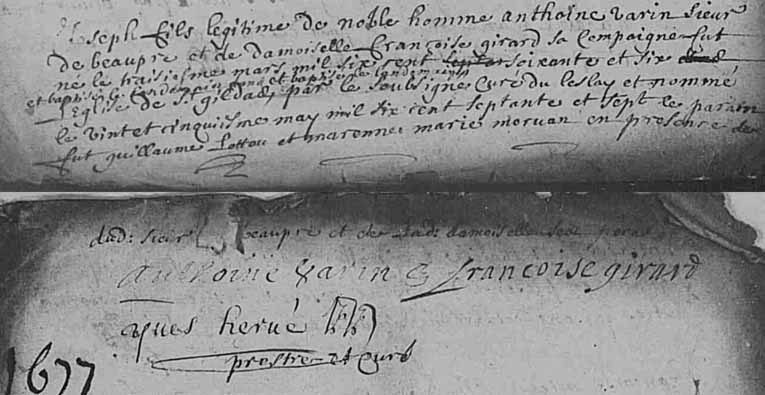 Joseph fils legitime de noble homme anthoine varin sieur
de beaupre et de damoiselle francoise girard sa compaigne fut
né le traisiesme mars mil six cent soixante et six
et baptisé le landemain
l'Eglise de st gildas par le soubsigne Curé du leslay et nommé
le vintet cinquiesme may mil six cent septante et sept le parain
fut guillaume lottou et maronne marie morvan en presence du
dud: sieur beaupre et de lad: damoiselle
anthoine varin francoise girard
yves hervé
prestre et Curé
1677